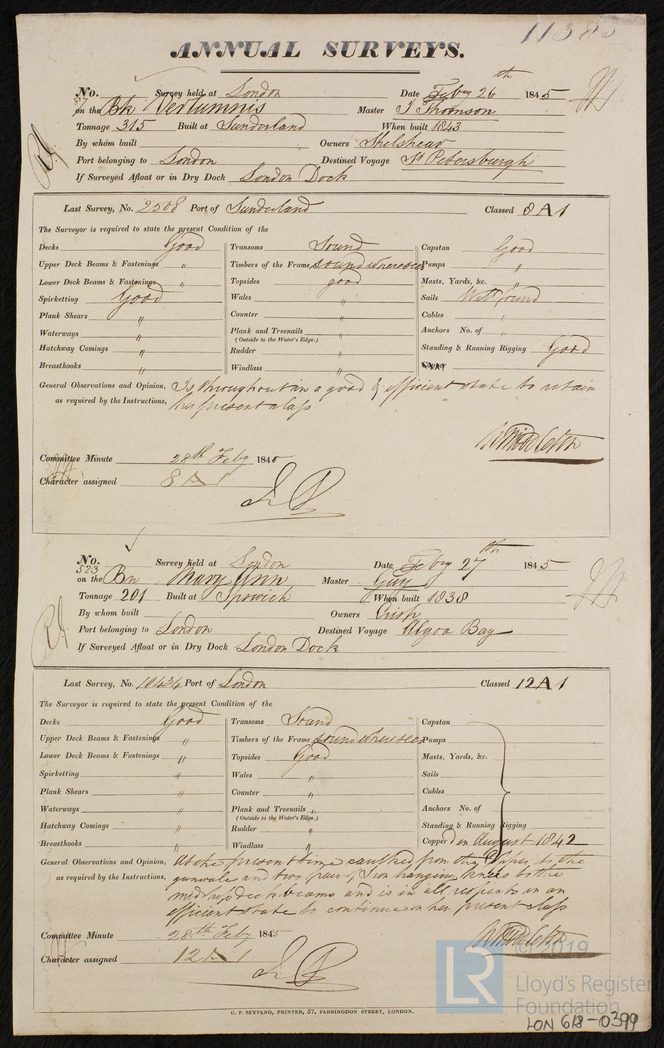 11385
ANNUAL SURVEYS.
No. 57 Survey held at London Date Feby 26th 1845
on the Bk Vertumnis Master J Thomson
Tonnage 315 Built at Sunderland When built 1843
By whom built Owners
Port belonging to London Destined Voyage St Petersburgh
If Surveyed Afloat or in Dry Dock London Dock
Last Survey, No. 2508 Port of Sunderland Classed 8 A 1
The Surveyor is required to state the present Condition of the
Decks Good Transoms Sound Capstan Good
Upper Deck Beams & Fastenings " Timbers of the Frame sound where seen Pumps "
Lower Deck Beams & Fastenings " Topsides good Masts, Yards, &c. "
Spirketting Good Wales " Sails Well found
Plank Shears " Counter " Cables "
Waterways " Plank and Treenails " Anchors No. of "
(Outside to the Water's Edge.)
Hatchway Comings " Rudder " Standing & Running Rigging Good
Breasthooks " Windlass "
General Observations and Opinion, Is throughout in a good & efficient state to retain
as required by the Instructions, her present class
W Middleton
Committee Minute 28th Feby 1845
Character assigned 8 A 1
No. 523 Survey held at London Date Feby 27th 1845
on the Bn Mary Ann Master Guy
Tonnage 201 Built at Ipswich When built 1838
By whom built Owners Crisp
Port belonging to London Destined Voyage Algoa Bay
If Surveyed Afloat or in Dry Dock London Dock
Last Survey, No. 10434 Port of London Classed 12 A 1
The Surveyor is required to state the present Condition of the
Decks Good Transoms Sound Capstan
Upper Deck Beams & Fastenings " Timbers of the Frame sound where seen Pumps
Lower Deck Beams & Fastenings " Topsides Good Masts, Yards, &c.
Spirketting " Wales " Sails
Plank Shears " Counter " Cables
Waterways " Plank and Treenails " Anchors No. of
(Outside to the Water's Edge.)
Hatchway Comings " Rudder " Standing & Running Rigging
Breasthooks " Windlass " Copperd in August 1842
General Observations and Opinion, At the present time caulked from the Copper to the
as required by the Instructions, gunwale and two pair Iron hanging knees to the
midship deck beams and is in all respects in an
efficient state to continue in her present class
W Middleton
Committee Minute 28th Feby 1845
Character assigned 12 A 1
C. F. SEYFANG, PRINTER, 57, FARRINGDON STREET, LONDON.
© 2019
LR Lloyd's Register
Foundation
LON 618-0399